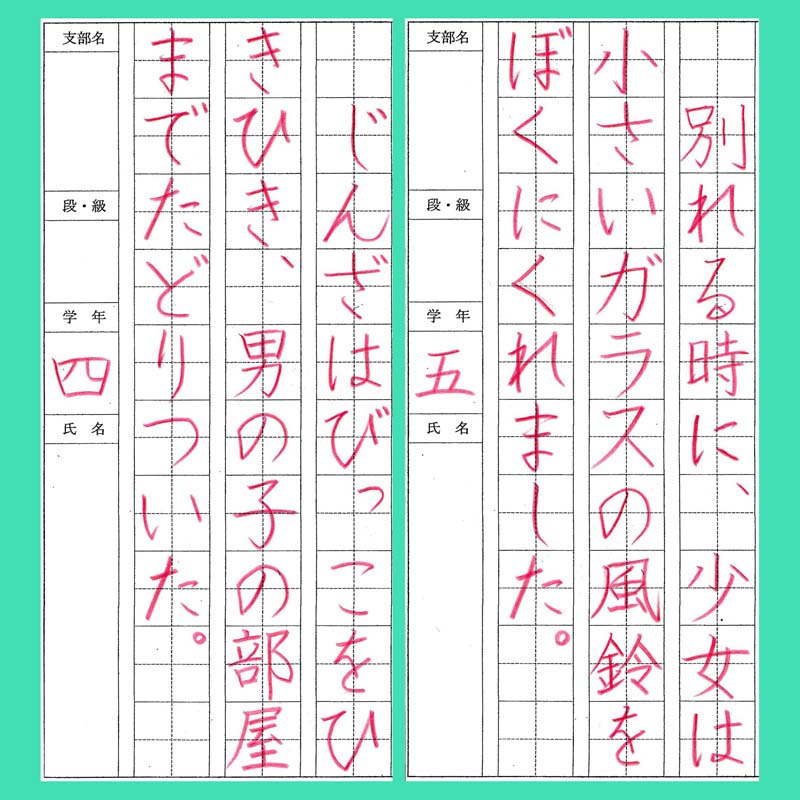 別れる時に、少女は
小さいガラスの風鈴を
ぼくにくれました。
支部名
段・級
学年
五
氏名
じんざはびっこをひ
きひき、男の子の部屋
までたどりついた。
支部名
段・級
学年
四
氏名